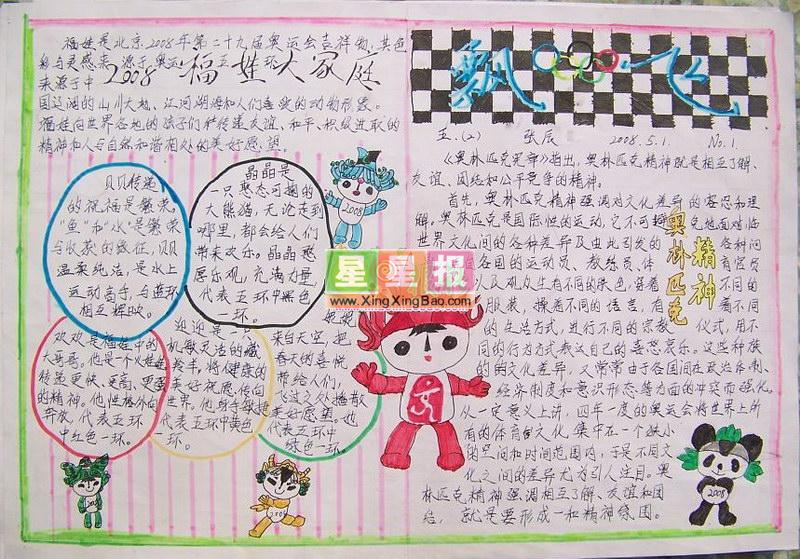 福娃是北京2008年第二十九届奥运会吉祥物,其色
彩与灵感来源于奥运五环
来源于中
2008福娃大家庭
国辽阔的山川大地、江河湖海和人们喜爱的动物形象。
福娃向世界各地的孩子们传递友谊、和平、积极进取的
精神和人与自然和谐相处的美好愿望。
贝贝传递
的祝福是繁荣。
"鱼"和"水"是繁荣
与收获的象征,贝贝
温柔纯洁,是水上
运动高手,与蓝环
相互辉映。
晶晶是
一只憨态可掬的
大熊猫,无论走到
哪里,都会给人们
带来欢乐。晶晶
乐观,充满力量,
代表五环中黑色
一环。
欢欢是福娃中的
大哥哥。他是一个火娃娃
传递更快、更高、更强
的精神。他性格外向
奔放,代表五环
中红色一环。
迎迎是一只
机敏灵活的藏
羚羊,将健康的
美好祝愿传向
世界。他身手敏捷
代表五环中黄色
一环。
妮妮
来自天空,把
春天的喜悦
带给人们,
飞过之处播散
美好愿望。也
代表五环中
绿色一环。
2008
2008
2008
2008
星星报
www.XingXingBao.com
飘飞
五.(2) 张辰 2008.5.1. No.1.
《奥林匹克宪章》指出,奥林匹克精神就是相互了解、
友谊、团结和公平竞争的精神。
奥林匹克
精神
首先,奥林匹克精神强调对文化差异的容忍和理
解。奥林匹克是国际性的运动,它不可避免地面对临
世界文化间的各种差异及由此引发的各种问
各国的运动员、教练员、体育官员
以及观众生有不同的肤色,穿着不同的
服装,操着不同的语言,有着不同
的生活方式,进行不同的宗教仪式,用不
同的行为方式表达自己的喜怒哀乐。这些种族
的文化差异,又常常由于各国间在政治体制、
经济制度和意识形态等方面的冲突而强化。
从一定意义上讲,四年一度的奥运会将世界上所
有的体育文化集中在一个狭小
的空间和时间范围内,于是不同文
化之间的差异尤为引人注目。奥
林匹克精神强调相互了解、友谊和团
结,就是要形成一种精神氛围。